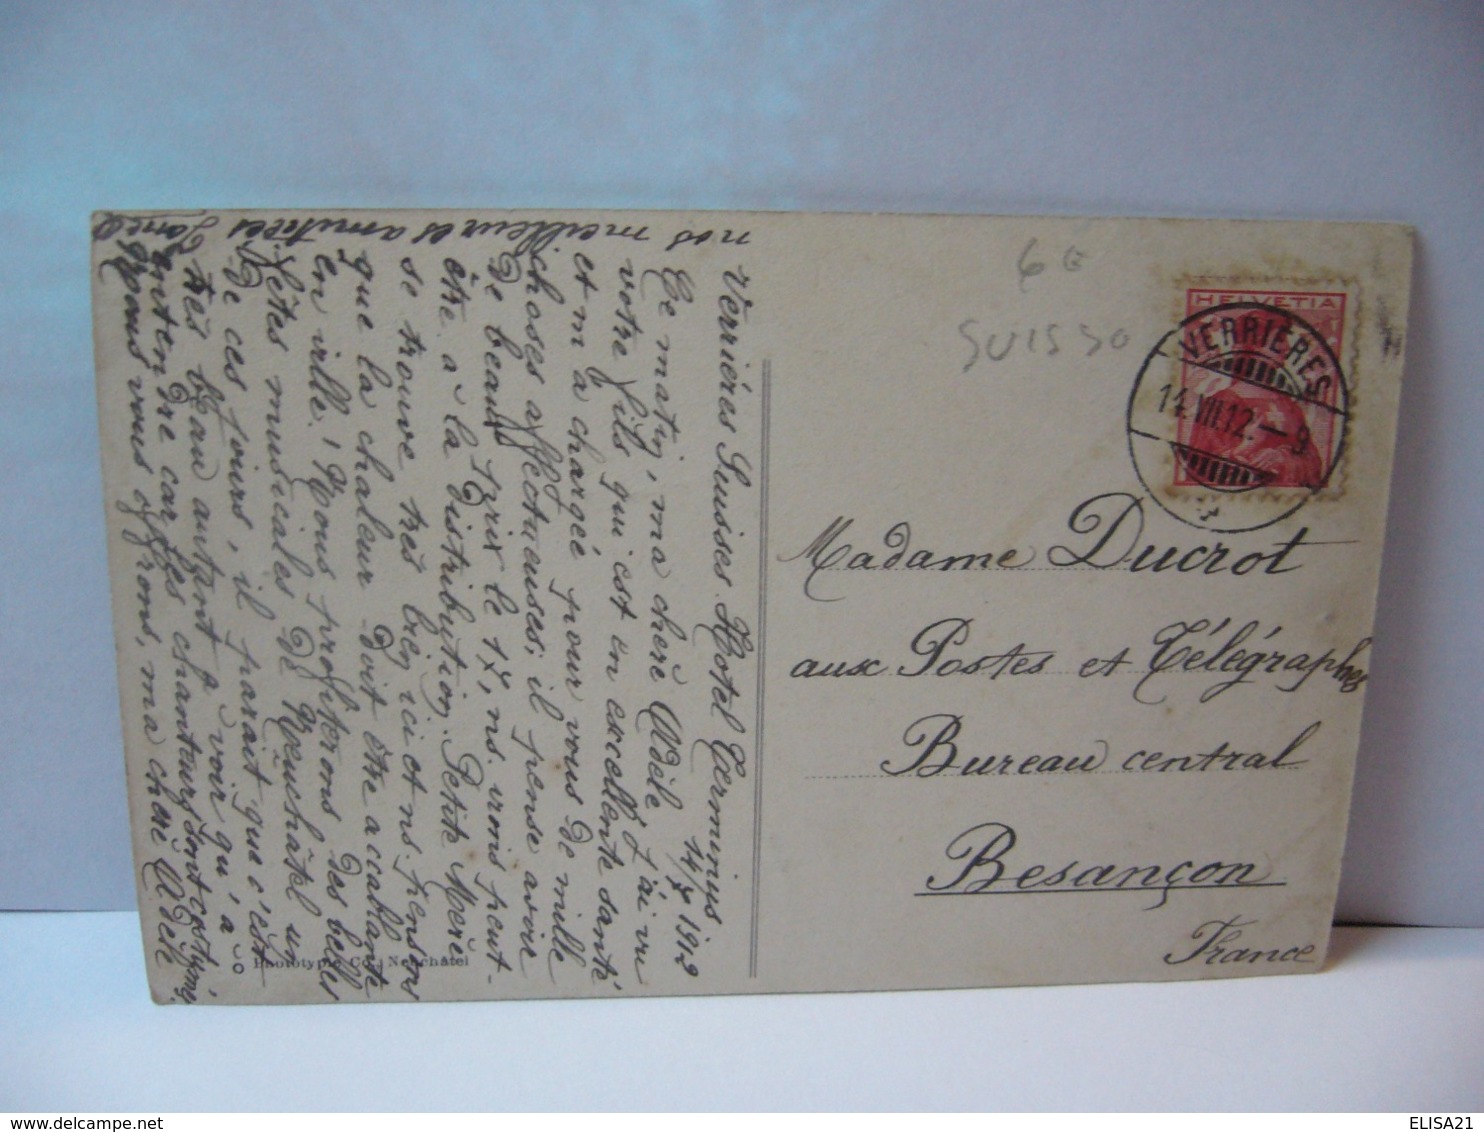 Verrières Suisses. Hotel Terminus
14/7 1912
Ce matin, ma chère Adèle, j'ai vu
votre fils qui est en excellente santé
et m'a chargée pour vous de mille
choses affectueuses; il pense avoir
de beaux prix le 17, ns. irons peut-
être à la distribution. Petite Mère
se trouve très bien ici et ns. pensons
que la chaleur doit être accablante
en ville! Nous profiterons des belles
fêtes musicales de Neuchâtel un
de ces jours, il parait que c'est
très beau autant à voir qu'à
entendre car les chanteurs sont costumés.
Nous vous offrons, ma chère Adèle
nos meilleures amitiés
Phototypie Co., Neuchâtel
6 €
SUISSO
HELVETIA
VERRIÈRES
14.VII.12.-9
Madame Ducrot
aux Postes et Télégraphes
Bureau central
Besançon
France
ELISA21